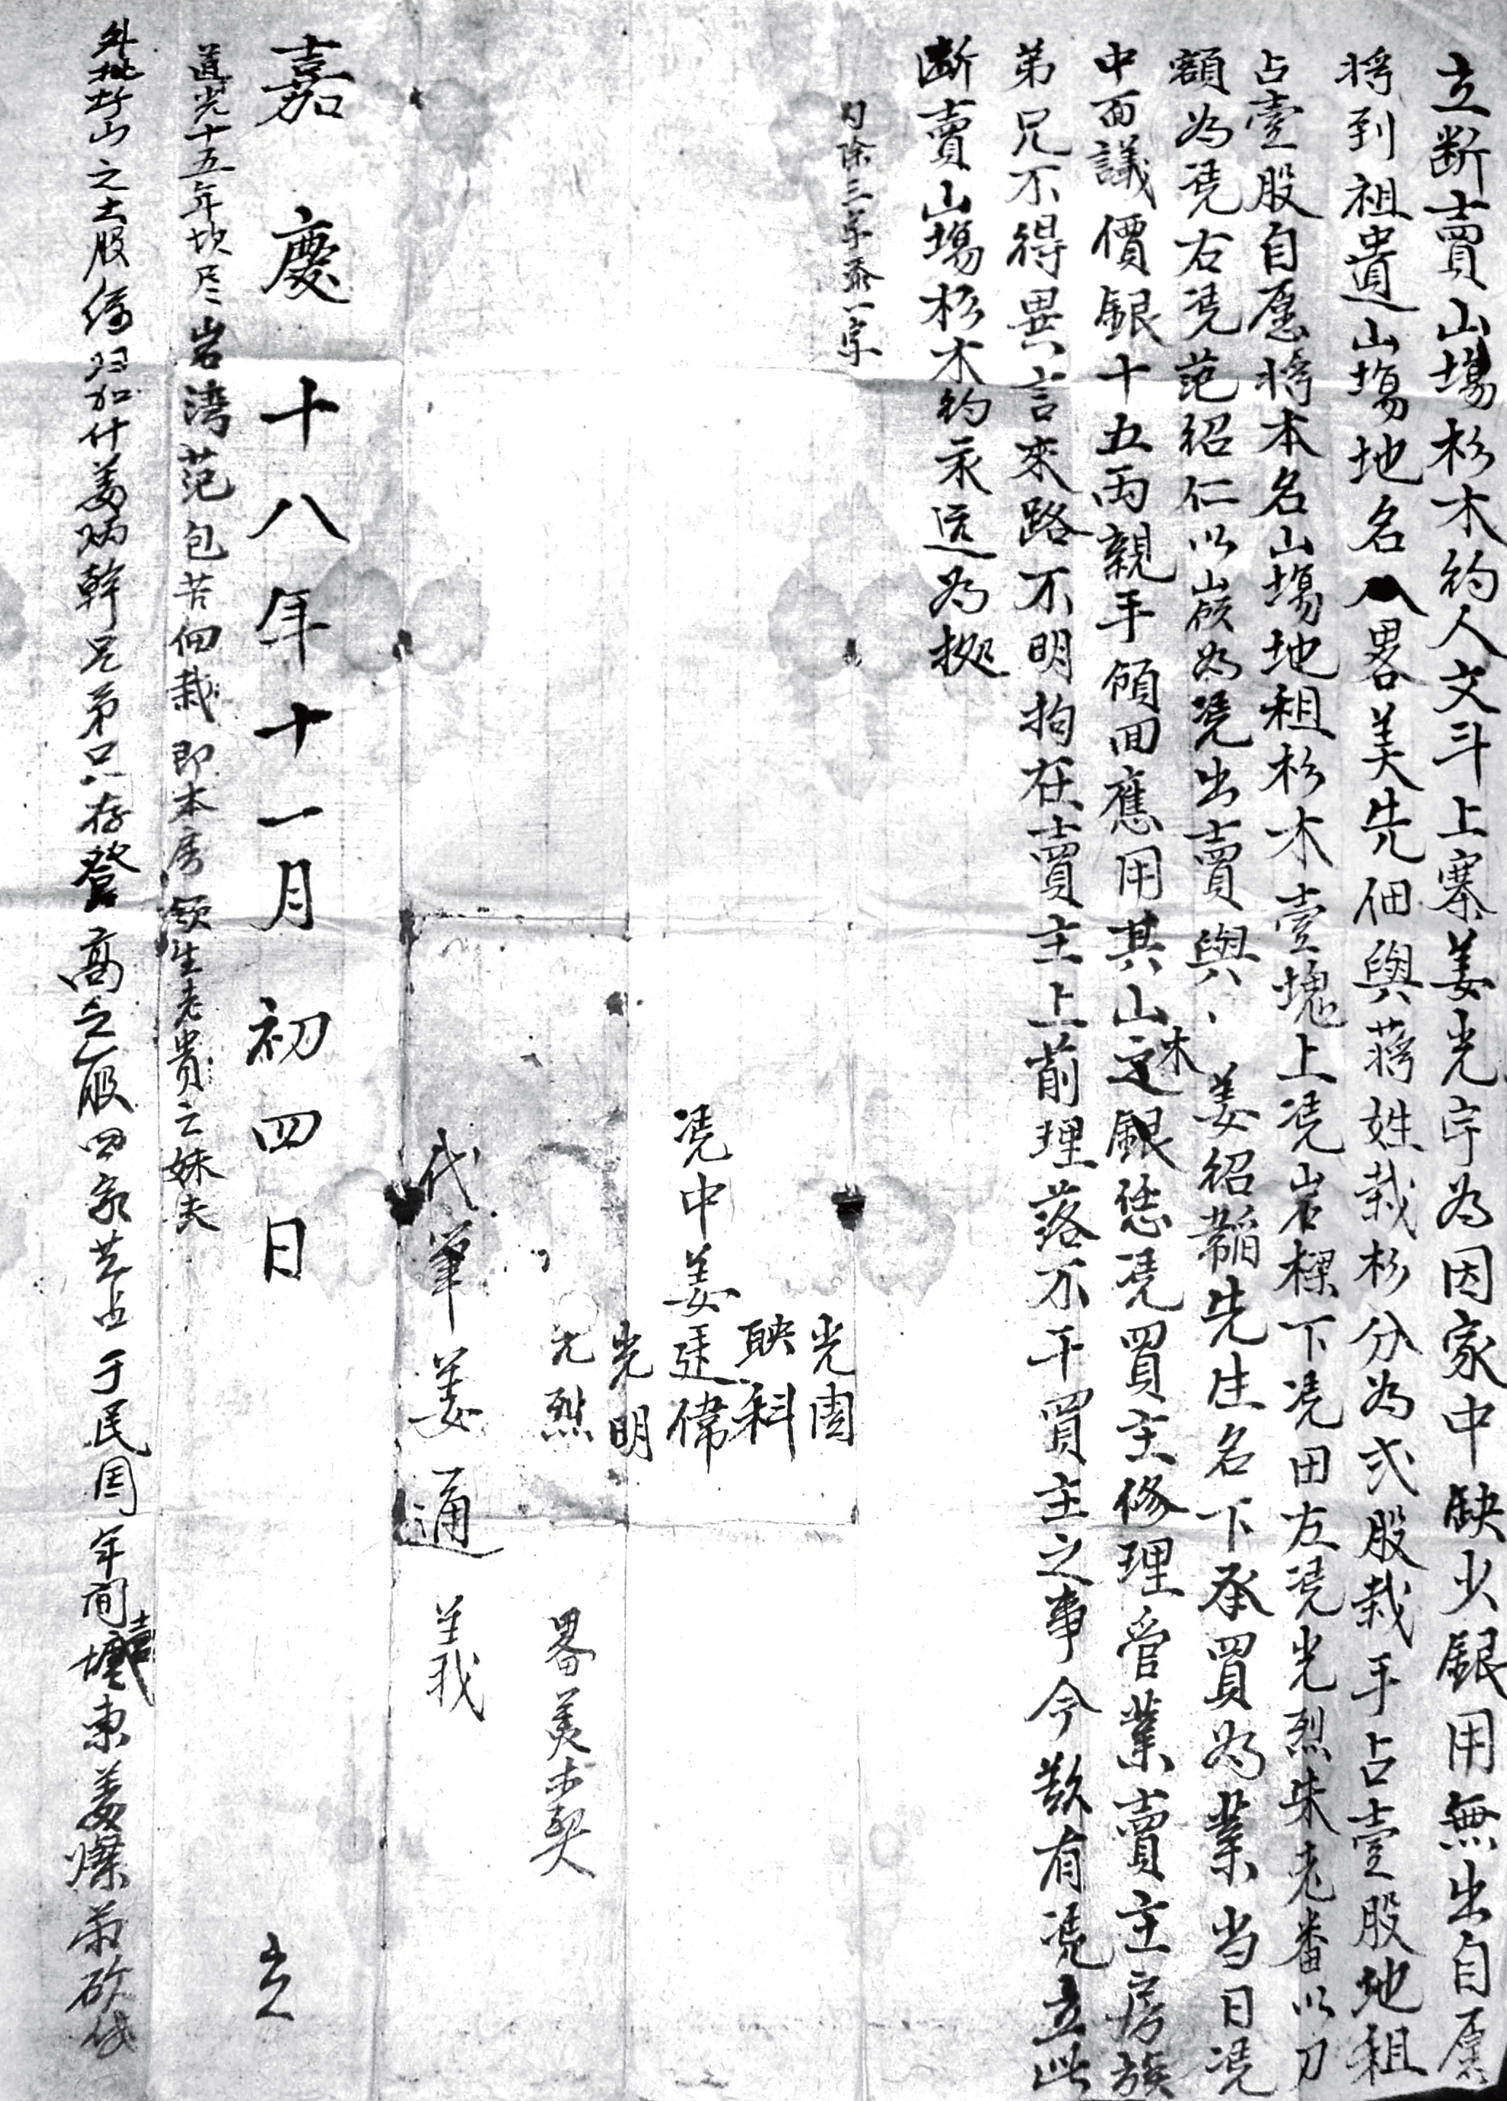 立断賣山塲杉木約人文斗上寨姜光宇為因家中缺少銀用無出自愿
将到祖遺山塲地名八畧美先佃與蒋姓栽杉分為弍股栽手占壹股地租
占壹股自愿将本名山塲地租杉木壹塊上凴岩樑下凴田左凴光烈朱老番以刀
額為凴右凴范紹仁以嶺為凴出賣與姜紹韜先生名下承買為業当日凴
中面議價銀十五両親手領回應用其山木之銀恁凴買主修理管業賣主房族
弟兄不得異言來路不明拘在賣主上前理落不干買主之事今欲有凴立此
断賣山塲杉木約永远為㨿
内除三字添一字
光國
映科
凴中姜廷偉
光明
光烈
畧美山契
代筆姜通義
嘉慶十八年十一月初四日立
道光十五年坎尽岩湾范包苦佃栽即本房生老貴之妹夫
外批於山之土股係加什姜炳幹兄弟只存登高之股四家共占于民國年間東姜燦砍伐